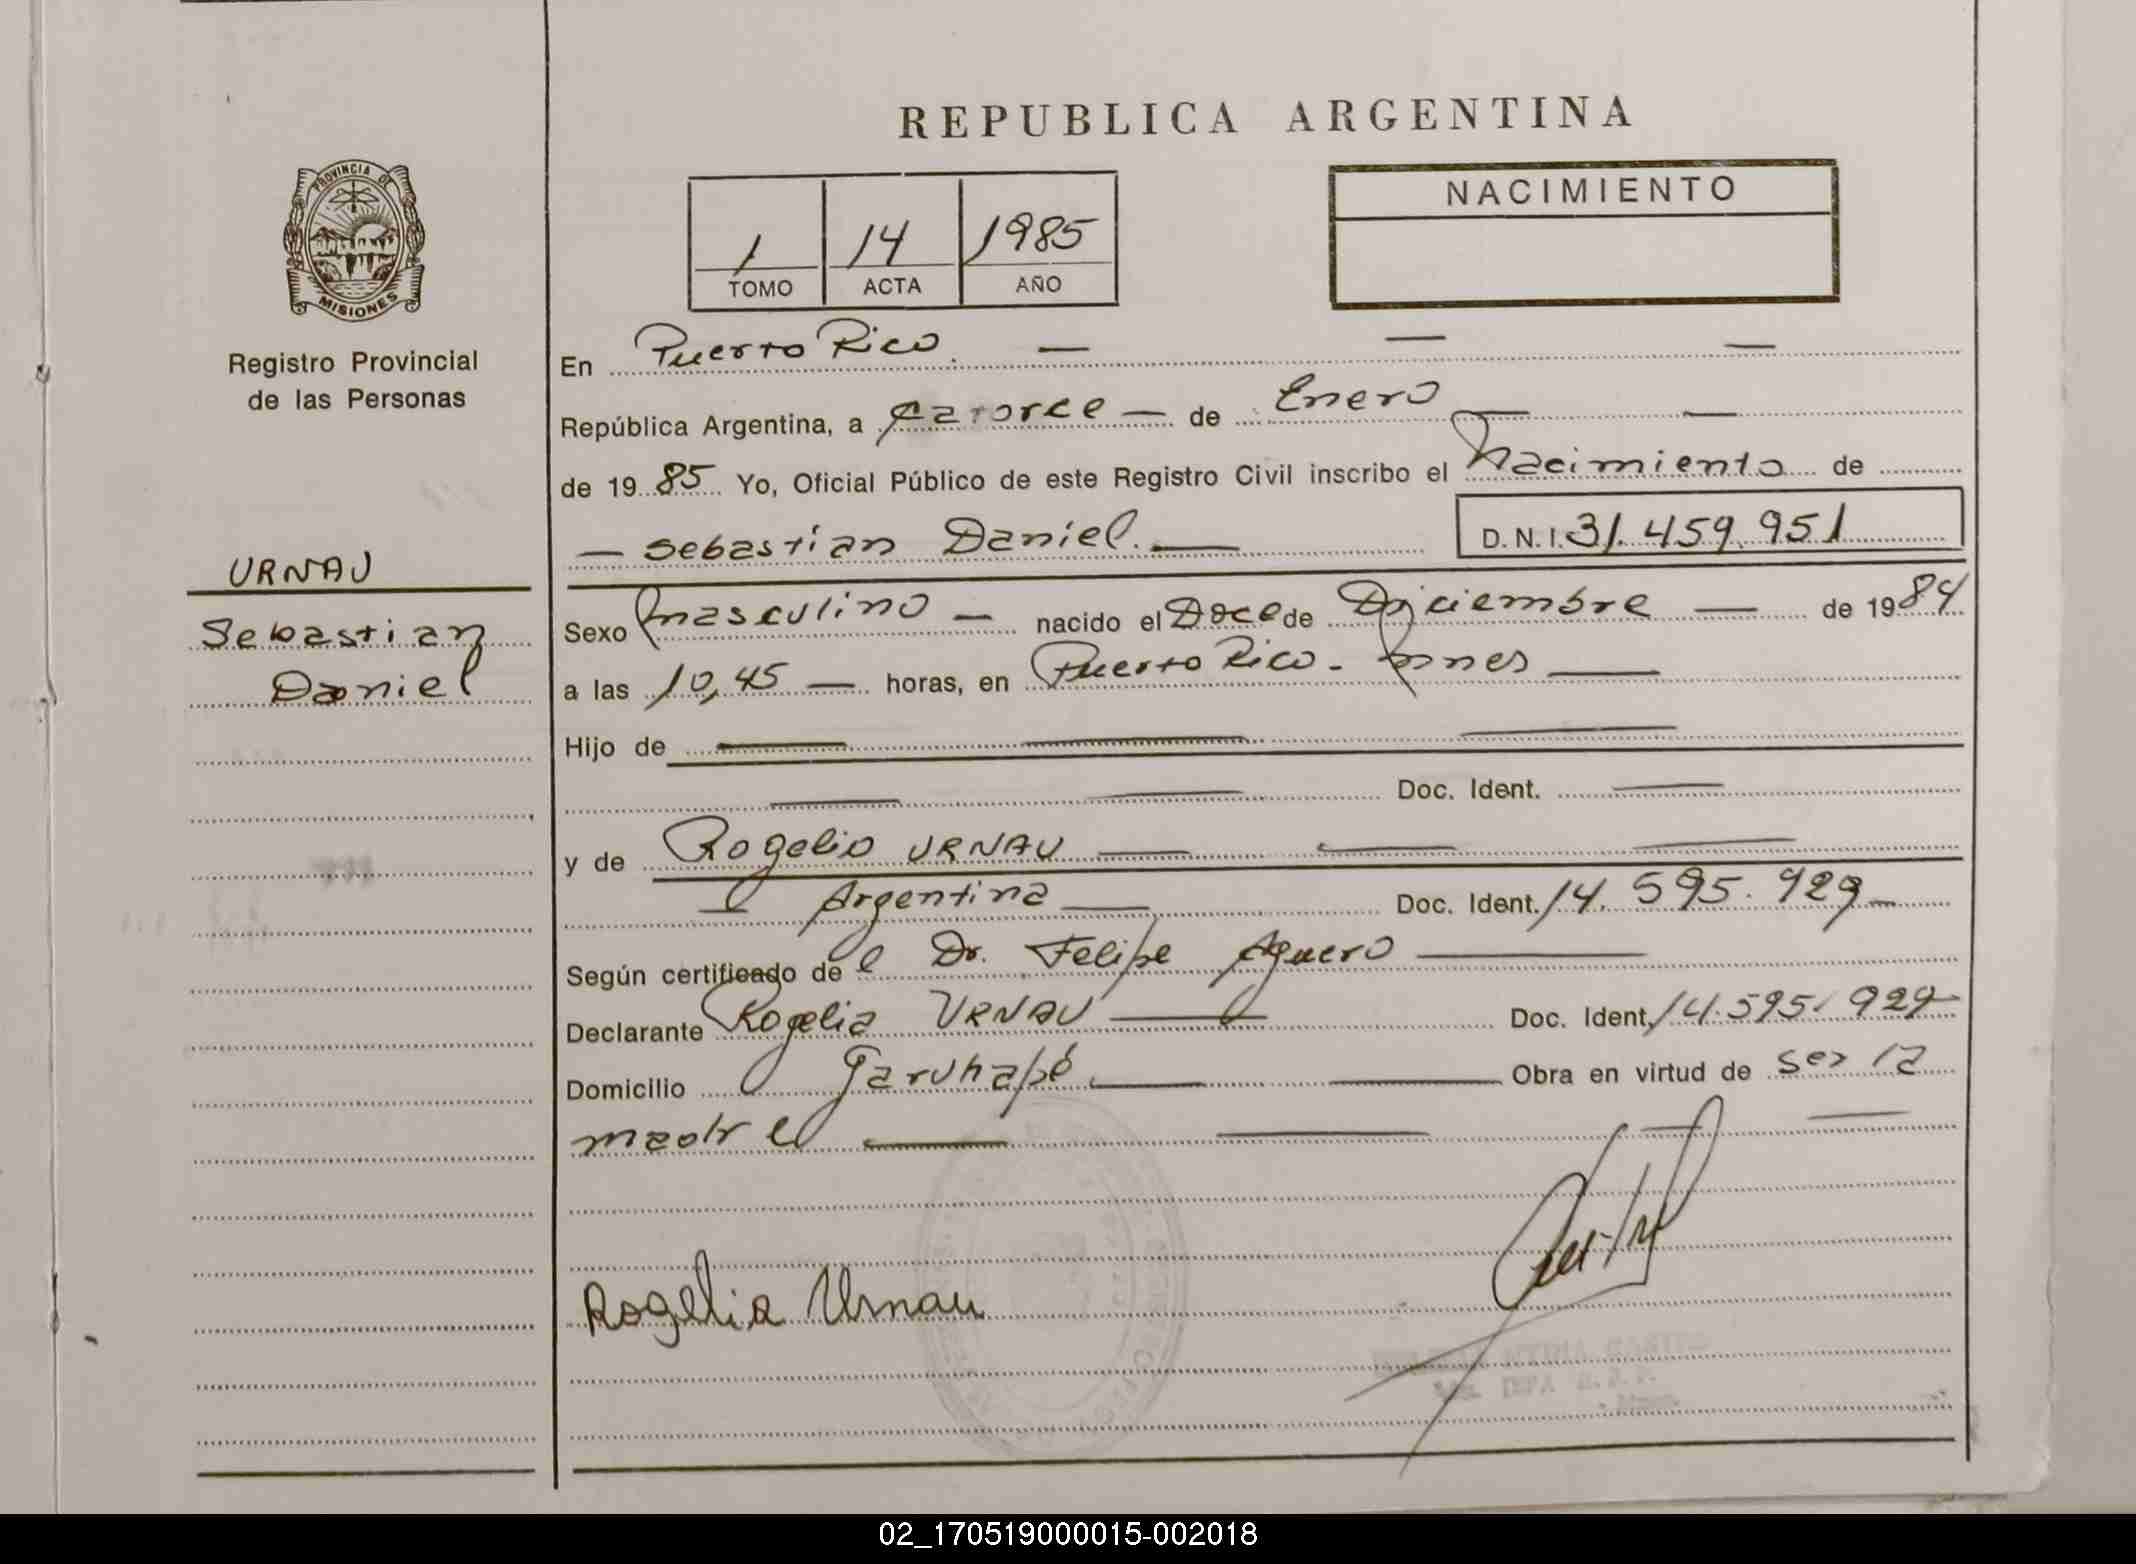 REPUBLICA ARGENTINA
PROVINCIA DE
MISIONES
Registro Provincial
de las Personas
URNAU
Sebastian
Daniel
1 14 1985
TOMO ACTA AÑO
NACIMIENTO
En Puerto Rico. — — —
República Argentina, a catorce — de Enero — —
de 1985 Yo, Oficial Público de este Registro Civil inscribo el Nacimiento de
— Sebastian Daniel. — D.N.I. 31.459.951
Sexo masculino — nacido el Doce de Diciembre — de 1984
a las 10,45 — horas, en Puerto Rico - —
Hijo de — — —
— — Doc. Ident. —
y de Rogelio URNAU — — —
— Argentina — Doc. Ident. 14.595.929 —
Según certificado de l Dr. Felipe Aguero —
Declarante Rogelia URNAU — Doc. Ident. 14.595.929
Domicilio Garuhapé — — Obra en virtud de ser la
madre — — —
Rogelia Urnau
02_170519000015-002018